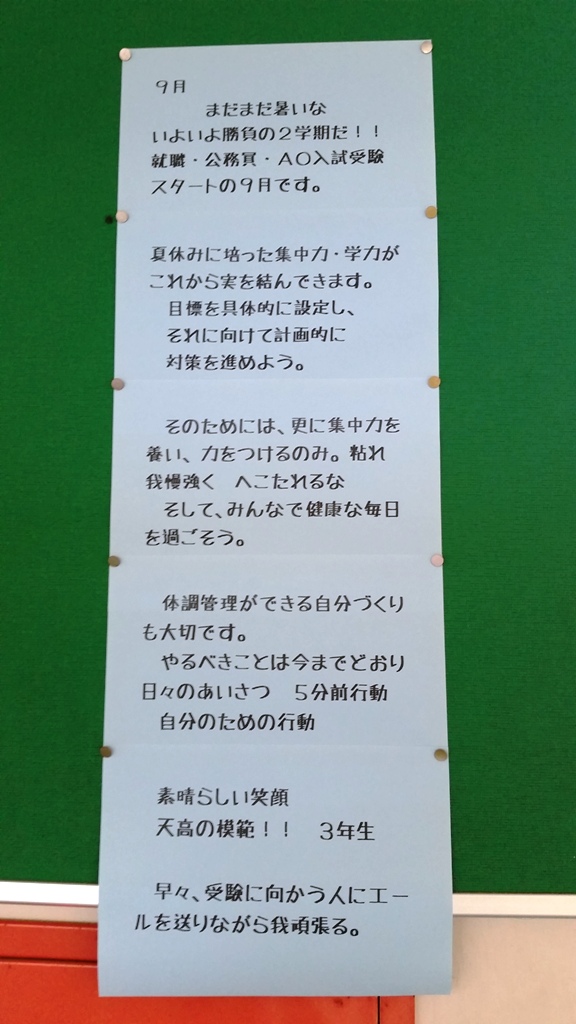 9月
まだまだ暑いな
いよいよ勝負の2学期だ！！
就職・公務員・AO入試受験
スタートの9月です。
夏休みに培った集中力・学力が
これから実を結んできます。
目標を具体的に設定し、
それに向けて計画的に
対策を進めよう。
そのためには、更に集中力を
養い、力をつけるのみ。粘れ
我慢強く　へこたれるな
そして、みんなで健康な毎日
を過ごそう。
体調管理ができる自分づくり
も大切です。
やるべきことは今までどおり
日々のあいさつ　5分前行動
自分のための行動
素晴らしい笑顔
天高の模範！！　3年生
早々、受験に向かう人にエー
ルを送りながら我頑張る。